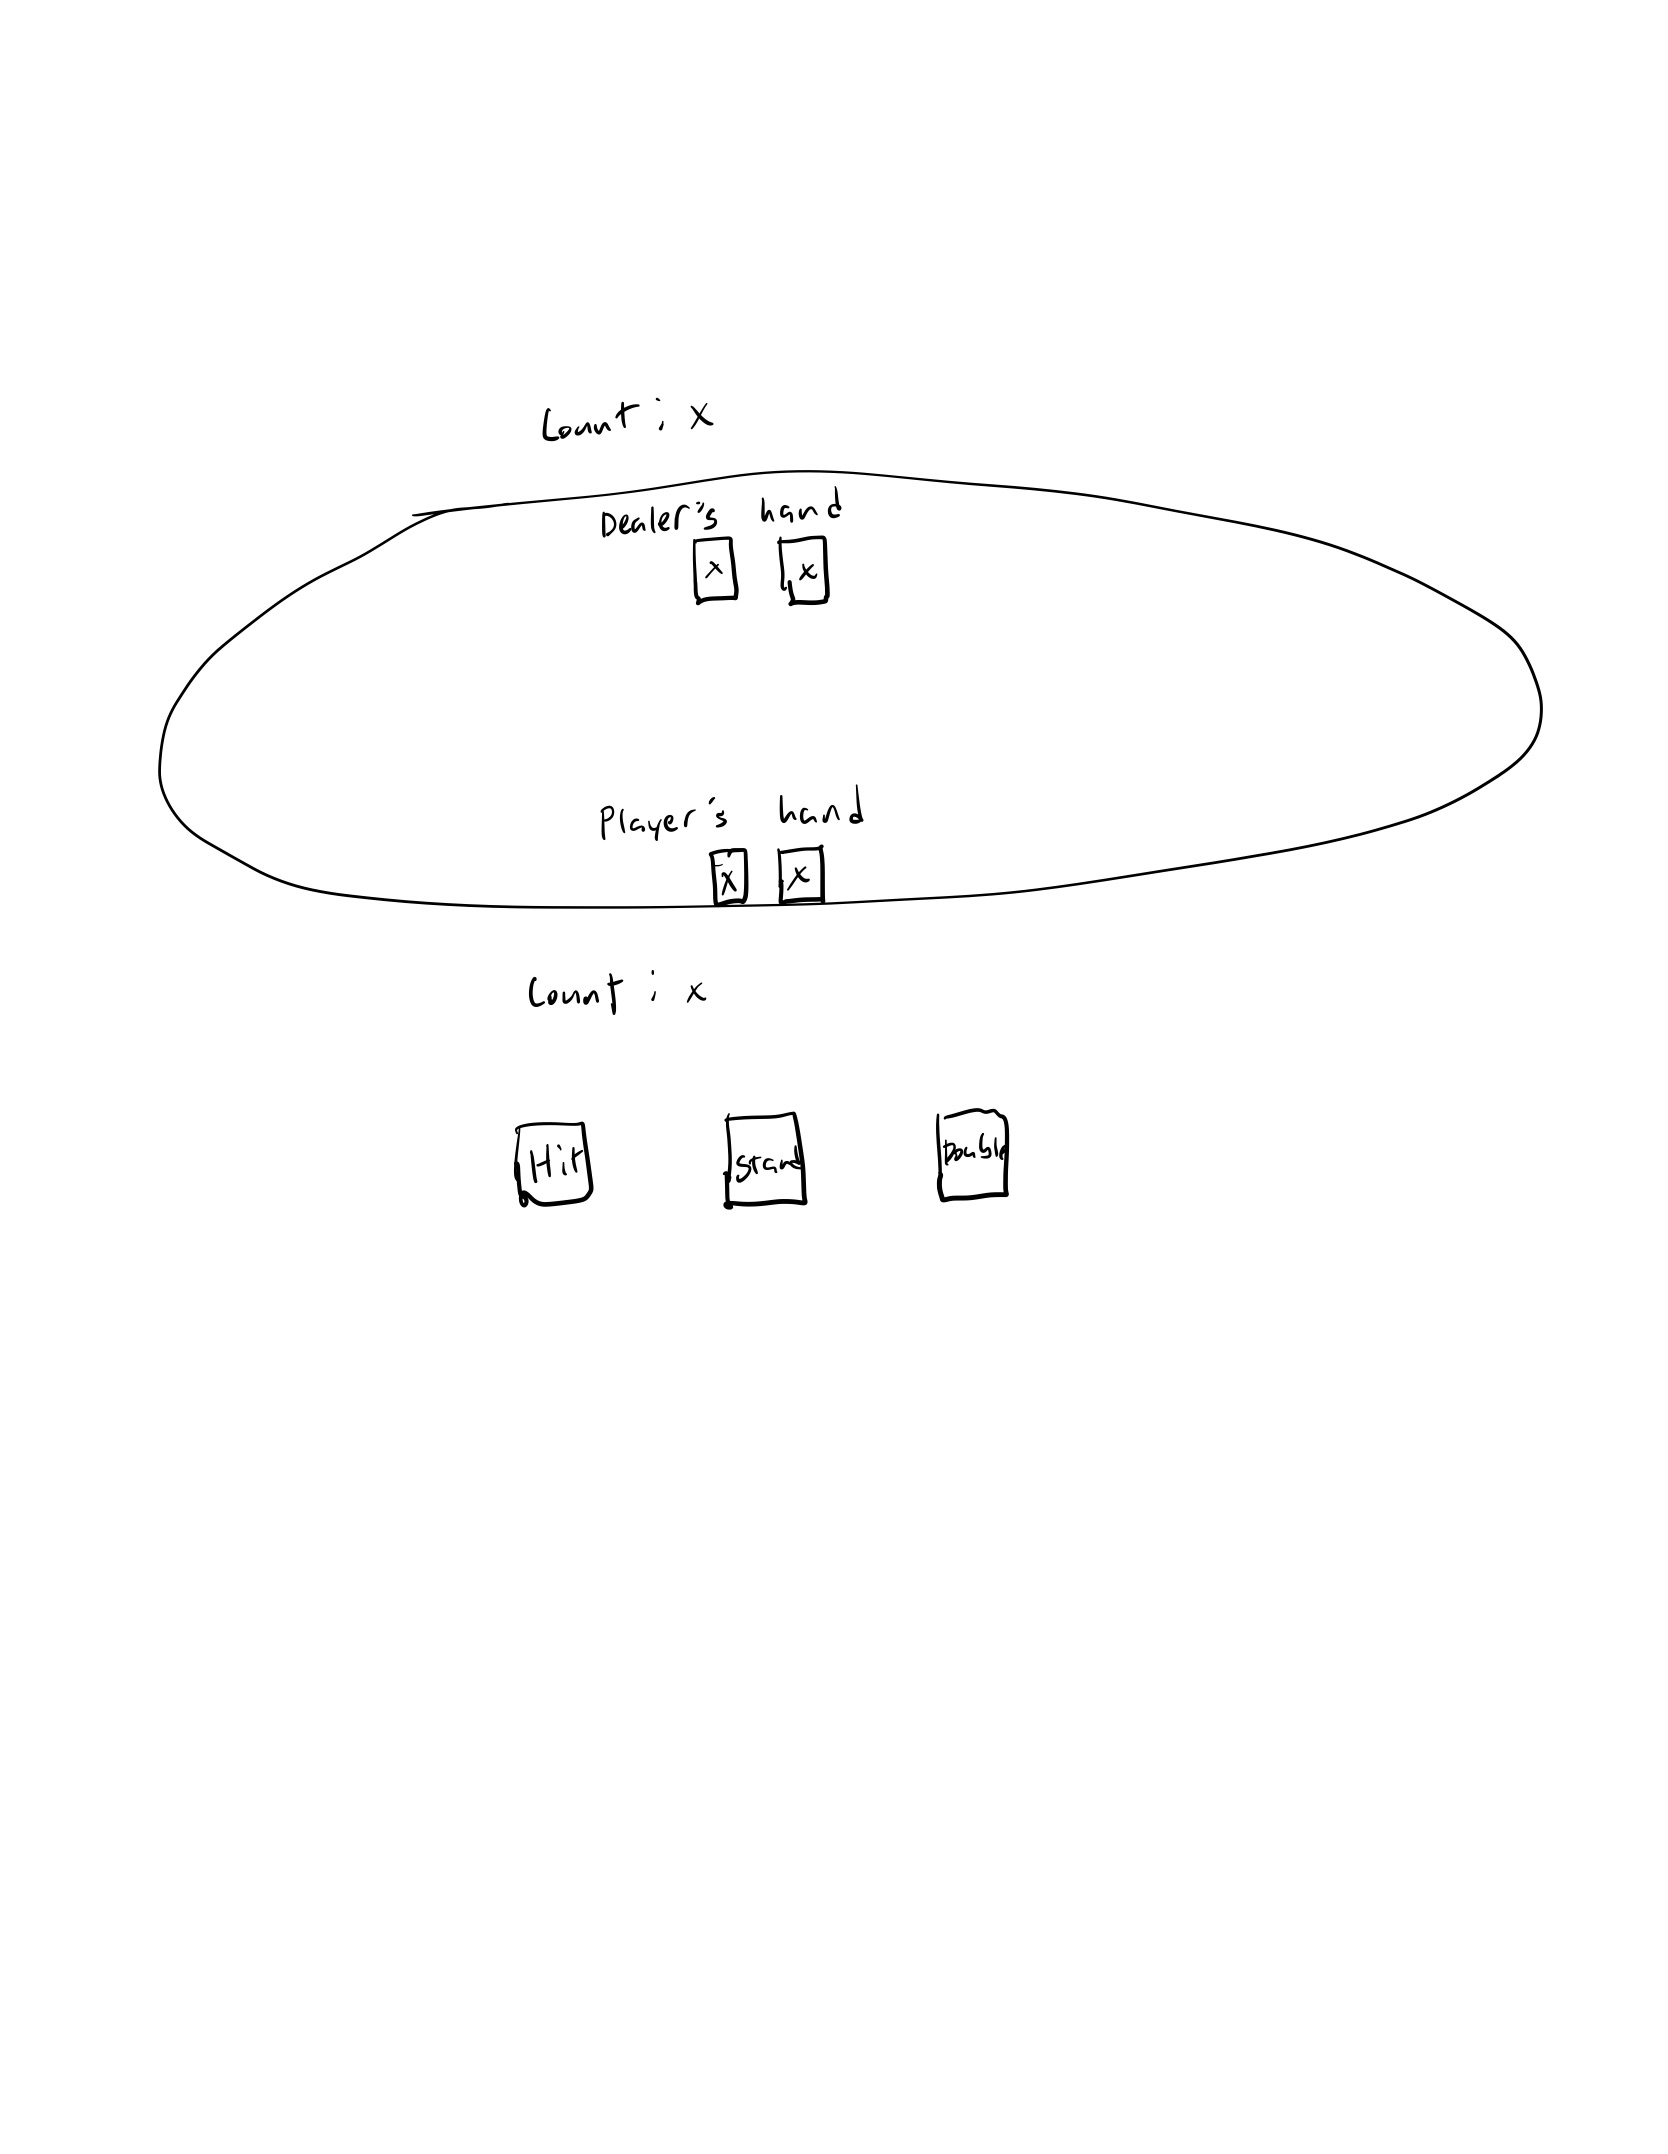 Count : x
Dealer's hand
x x
Player's hand
x x
Count : x
Hit Stand Double